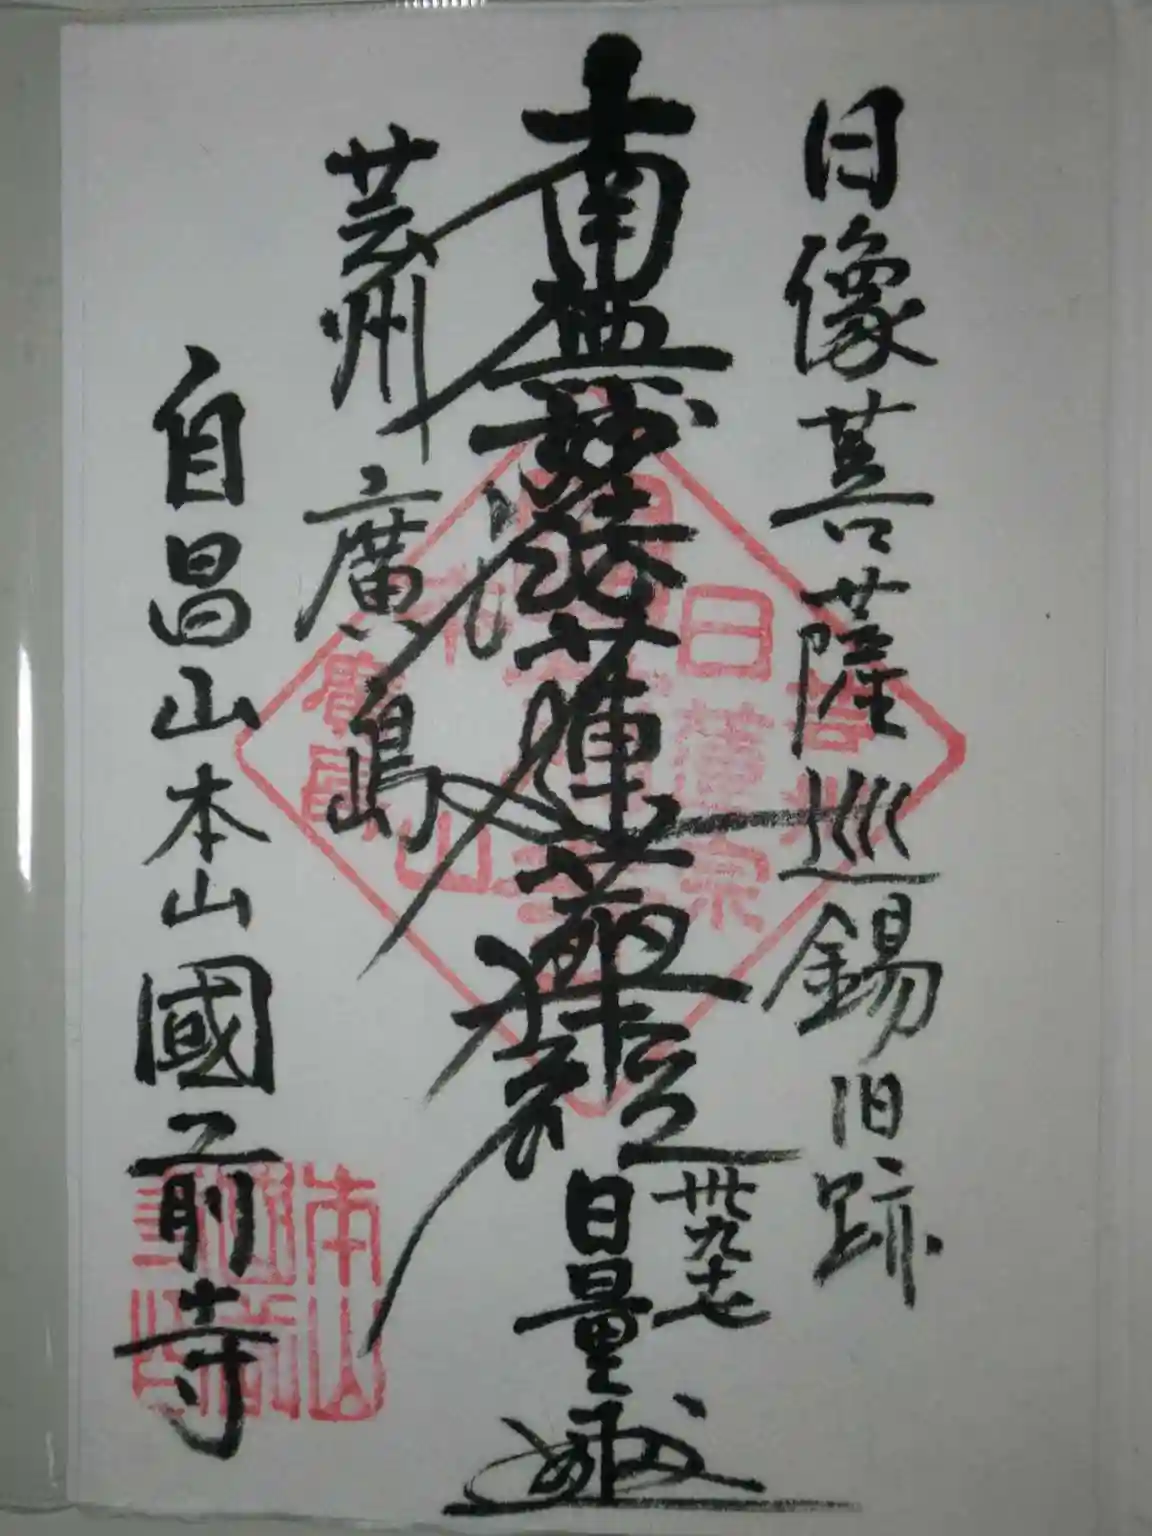 日像菩薩巡錫旧跡
南無妙法蓮華経
日量
芸州廣嶋
自昌山本山國前寺
日蓮宗